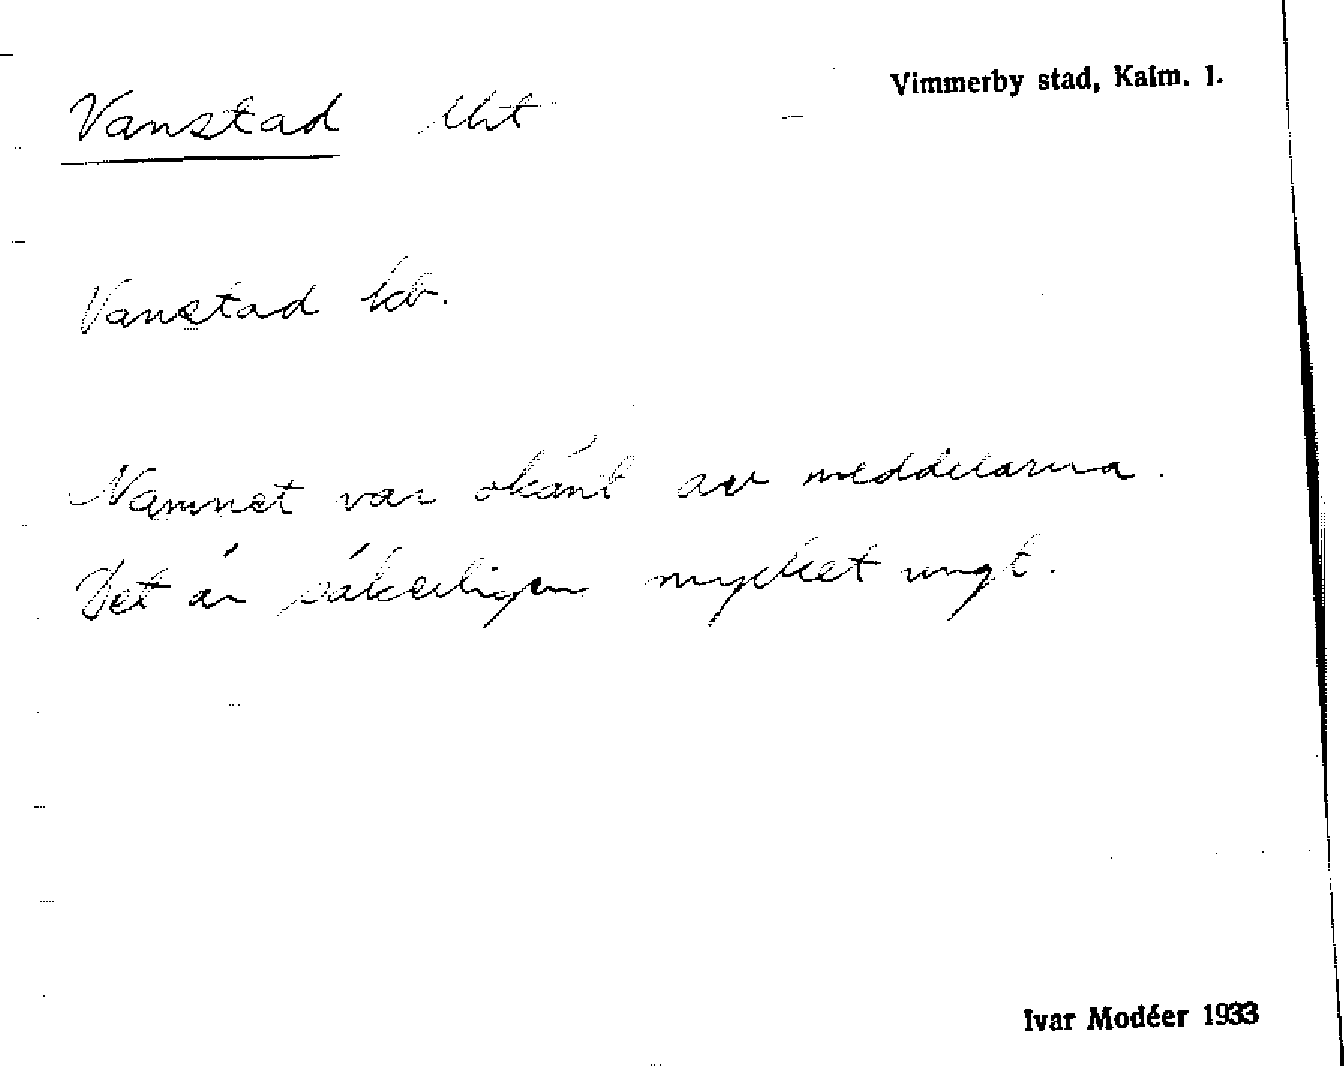 Vimmerby stad, Kalm. l.
Vanstad lht
Vanstad kb.
Namnet var okänt av meddelarna.
Det är säkerligen mycket ungt.
Ivar Modéer 1933